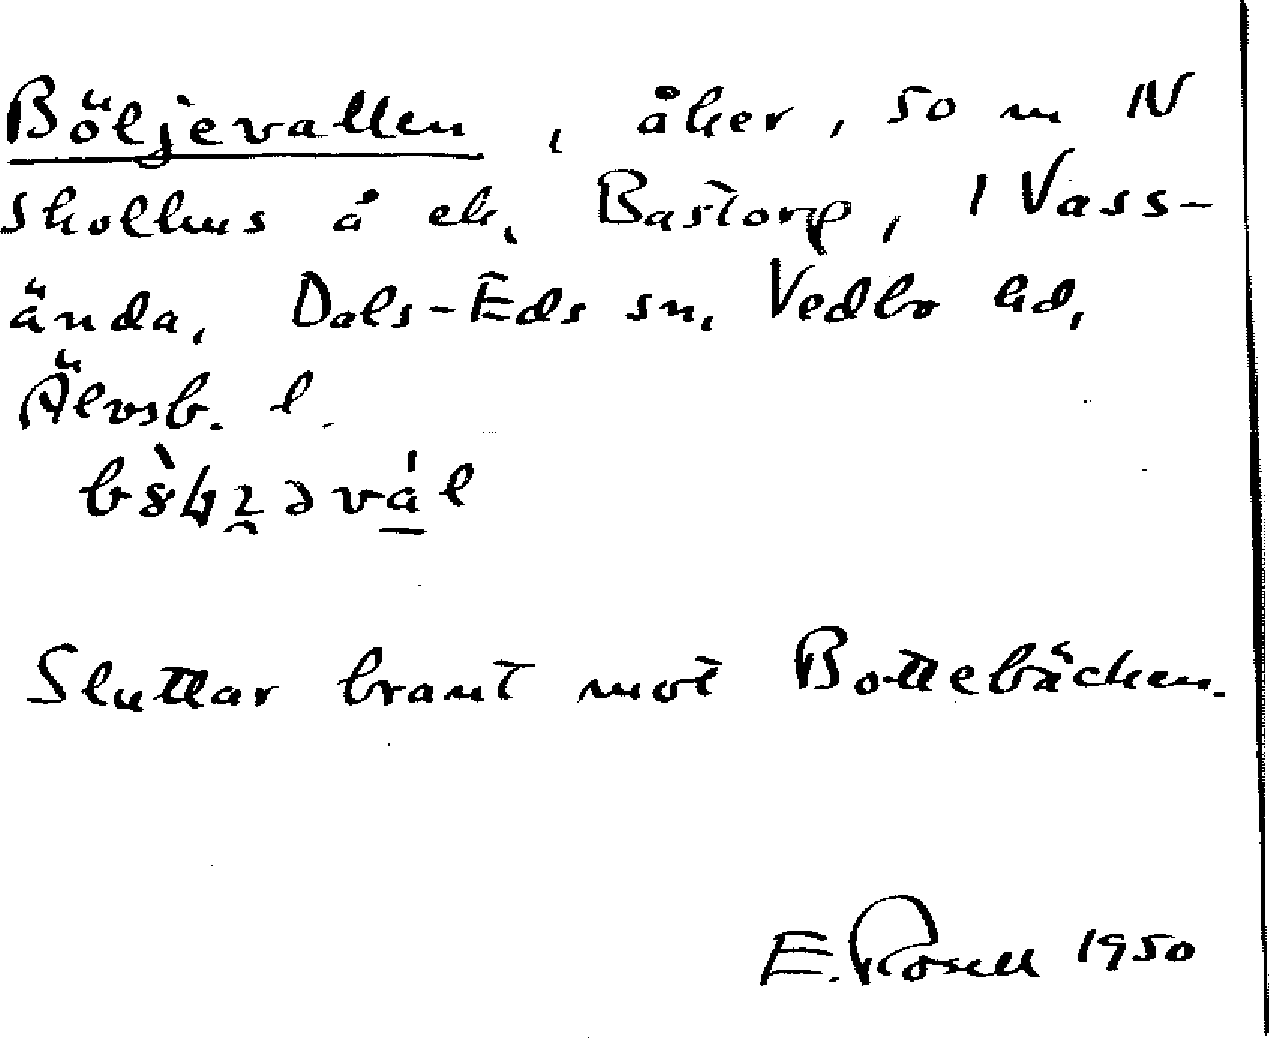 Böljevallen, åker, 50 m N
skolhus å ek. Bastorp, 1 Vass-
ända, Dals-Eds sn, Vedbo hd,
Älvsb. l.
Sluttar brant mot Bottebäcken.
E. Rosell 1950